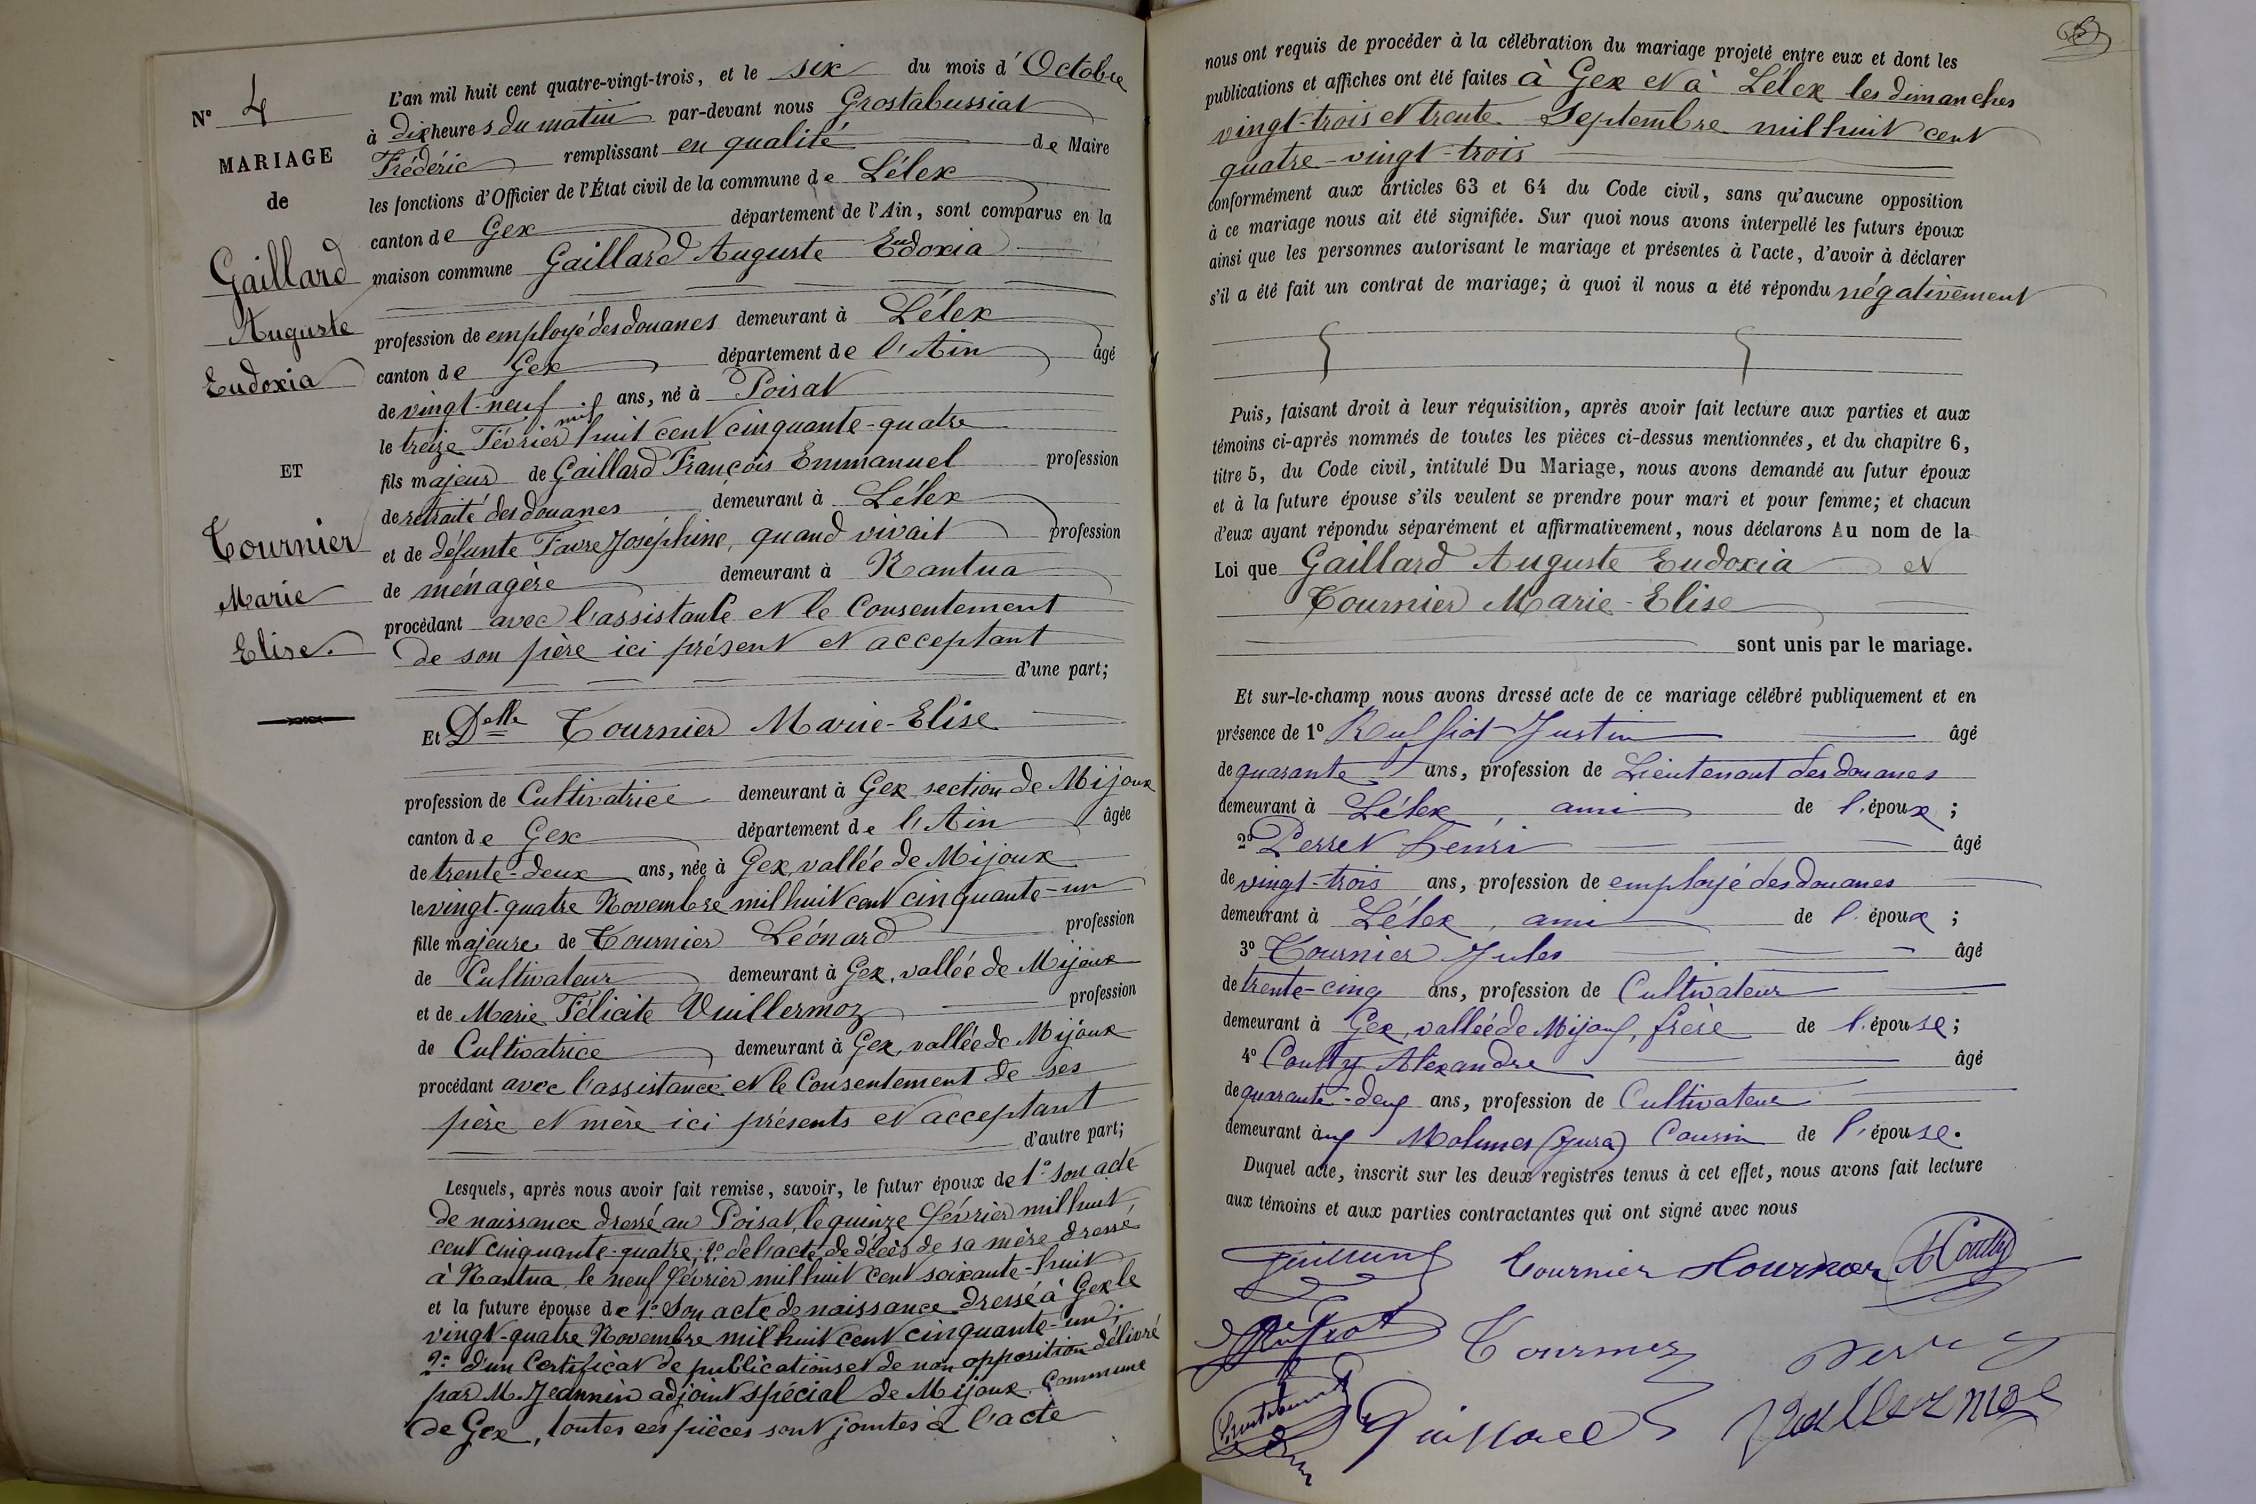 Nº 4
MARIAGE
de
Gaillard
Auguste
Eudoxia
ET
Tournier
Marie
Elise.
L'an mil huit cent quatre-vingt-trois, et le six du mois d'Octobre
à dix heures du matin par-devant nous Grostabussiat
Frédéric remplissant en qualité de Maire
les fonctions d'Officier de l'État civil de la commune de Lélex
canton de Gex département de l'Ain, sont comparus en la
maison commune Gaillard Auguste Eudoxia
profession de employé des douanes demeurant à Lélex
canton de Gex département de l'Ain âgé
de vingt-neuf ans, né à Poisat
le treize Février mil huit cent cinquante-quatre
fils majeur de Gaillard François Emmanuel profession
de retraité des douanes demeurant à Lélex
et de défunte Favre Joséphine, quand vivait profession
de ménagère demeurant à Nantua
procédant avec l'assistante et le Consentement
de son père ici présent et acceptant
d'une part;
Et Delle Tournier Marie-Elise
profession de Cultivatrice demeurant à Gex section de Mijoux
canton de Gex département de l'Ain âgée
de trente-deux ans, née à Gex, vallée de Mijoux
le vingt-quatre Novembre mil huit cent cinquante-un
fille majeure de Tournier Léonard profession
de Cultivateur demeurant à Gex, vallée de Mijoux
et de Marie Félicite Vuillermoz profession
de Cultivatrice demeurant à Gex, vallée de Mijoux
procédant avec l'assistance et le Consentement de ses
père et mère ici présents et acceptant
d'autre part;
Lesquels, après nous avoir fait remise, savoir, le futur époux de 1º son acte
de naissance dressé au Poisat, le quinze février mil huit
cent cinquante-quatre; 2º de l'acte de décès de sa mère dressé
à Nantua le neuf février mil huit cent soixante-huit
et la future épouse de 1º Son acte de naissance dressé à Gex le
vingt-quatre Novembre mil huit cent cinquante-un;
2º d'un Certificat de publications et de non opposition délivré
par M. Jeannin adjoint spécial de Mijoux, Commune
de Gex, toutes ces pièces sont jointes à l'acte
nous ont requis de procéder à la célébration du mariage projeté entre eux et dont les
publications et affiches ont été faites à Gex et à Lélex les dimanches
vingt-trois et trente Septembre mil huit cent
quatre-vingt-trois
conformément aux articles 63 et 64 du Code civil, sans qu'aucune opposition
à ce mariage nous ait été signifiée. Sur quoi nous avons interpellé les futurs époux
ainsi que les personnes autorisant le mariage et présentes à l'acte, d'avoir à déclarer
s'il a été fait un contrat de mariage; à quoi il nous a été répondu négativement
Puis, faisant droit à leur réquisition, après avoir fait lecture aux parties et aux
témoins ci-après nommés de toutes les pièces ci-dessus mentionnées, et du chapitre 6,
titre 5, du Code civil, intitulé Du Mariage, nous avons demandé au futur époux
et à la future épouse s'ils veulent se prendre pour mari et pour femme; et chacun
d'eux ayant répondu séparément et affirmativement, nous déclarons Au nom de la
Loi que Gaillard Auguste Eudoxia et
Tournier Marie-Elise
sont unis par le mariage.
Et sur-le-champ nous avons dressé acte de ce mariage célébré publiquement et en
présence de 1º Ruffiot Justin âgé
de quarante ans, profession de Lieutenant des douanes
demeurant à Lélex, ami de l'époux;
2º Perret henri âgé
de vingt-trois ans, profession de employé des douanes
demeurant à Lélex, ami de l'époux;
3º Tournier Jules âgé
de trente-cinq ans, profession de Cultivateur
demeurant à Gex, vallée de Mijoux, frère de l'épouse;
4º Coutty Alexandre âgé
de quarante-deux ans, profession de Cultivateur
demeurant aux Molunes (Jura) Cousin de l'épouse.
Duquel acte, inscrit sur les deux registres tenus à cet effet, nous avons fait lecture
aux témoins et aux parties contractantes qui ont signé avec nous
Tournier Tournier
Ruffiot Tournier Perret
Gaillard Vuillermoz